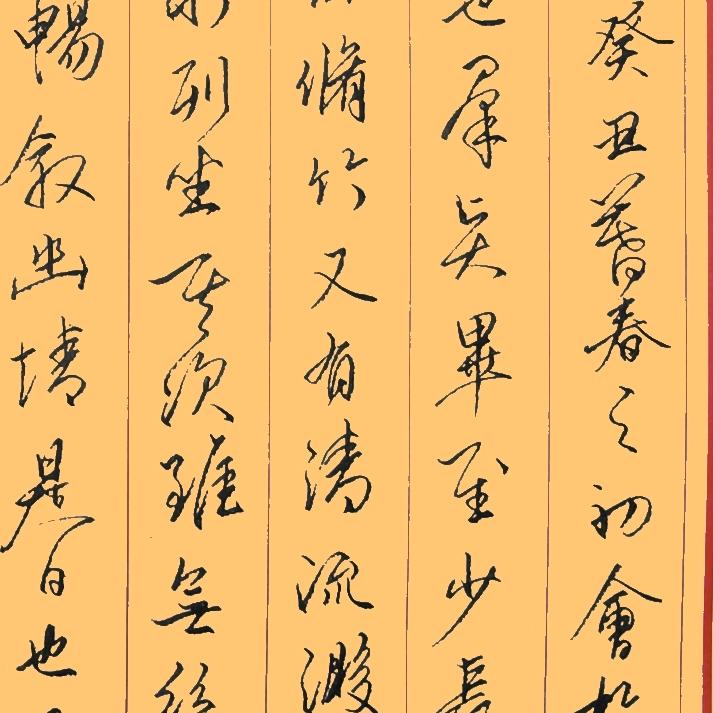 癸丑暮春之初會於
也羣賢畢至少長
脩竹又有清流激
水列坐其次雖無絲
暢叙幽情是日也